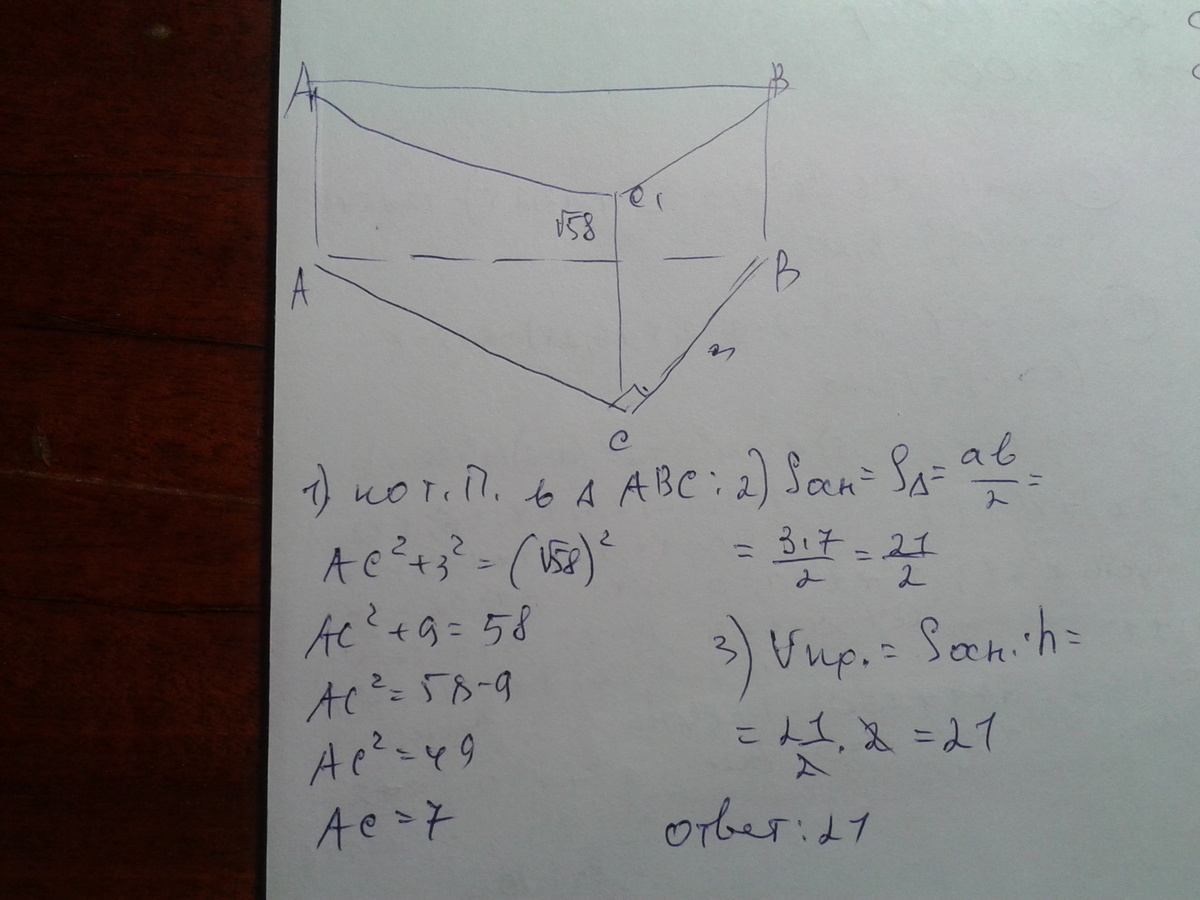 A B
C₁
√58
A B
3
C
1) по т. П. в Δ ABC:
AC² + 3² = (√58)²
AC² + 9 = 58
AC² = 58 - 9
AC² = 49
AC = 7
2) Sосн = SΔ = ab/2 =
= 3·7/2 = 21/2
3) Vпр. = Sосн. · h =
= 21/2 · 2 = 21
Ответ: 21